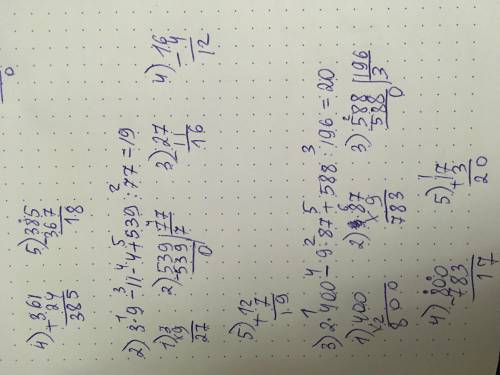 0
4) +361
24
385
5) -385
367
18
2) 3·9-11-4+539:77=19
1 3 4 5 2
1) ×3
9
27
2) -539|77
539|7
0
3) -27
11
16
4) -16
4
12
5) +12
7
19
3) 2·400-9·87+588:196=20
1 4 2 5 3
1) 400
×2
800
2) 87
×9
783
3) -588|196
588|3
0
4) -800
783
17
5) +17
3
20